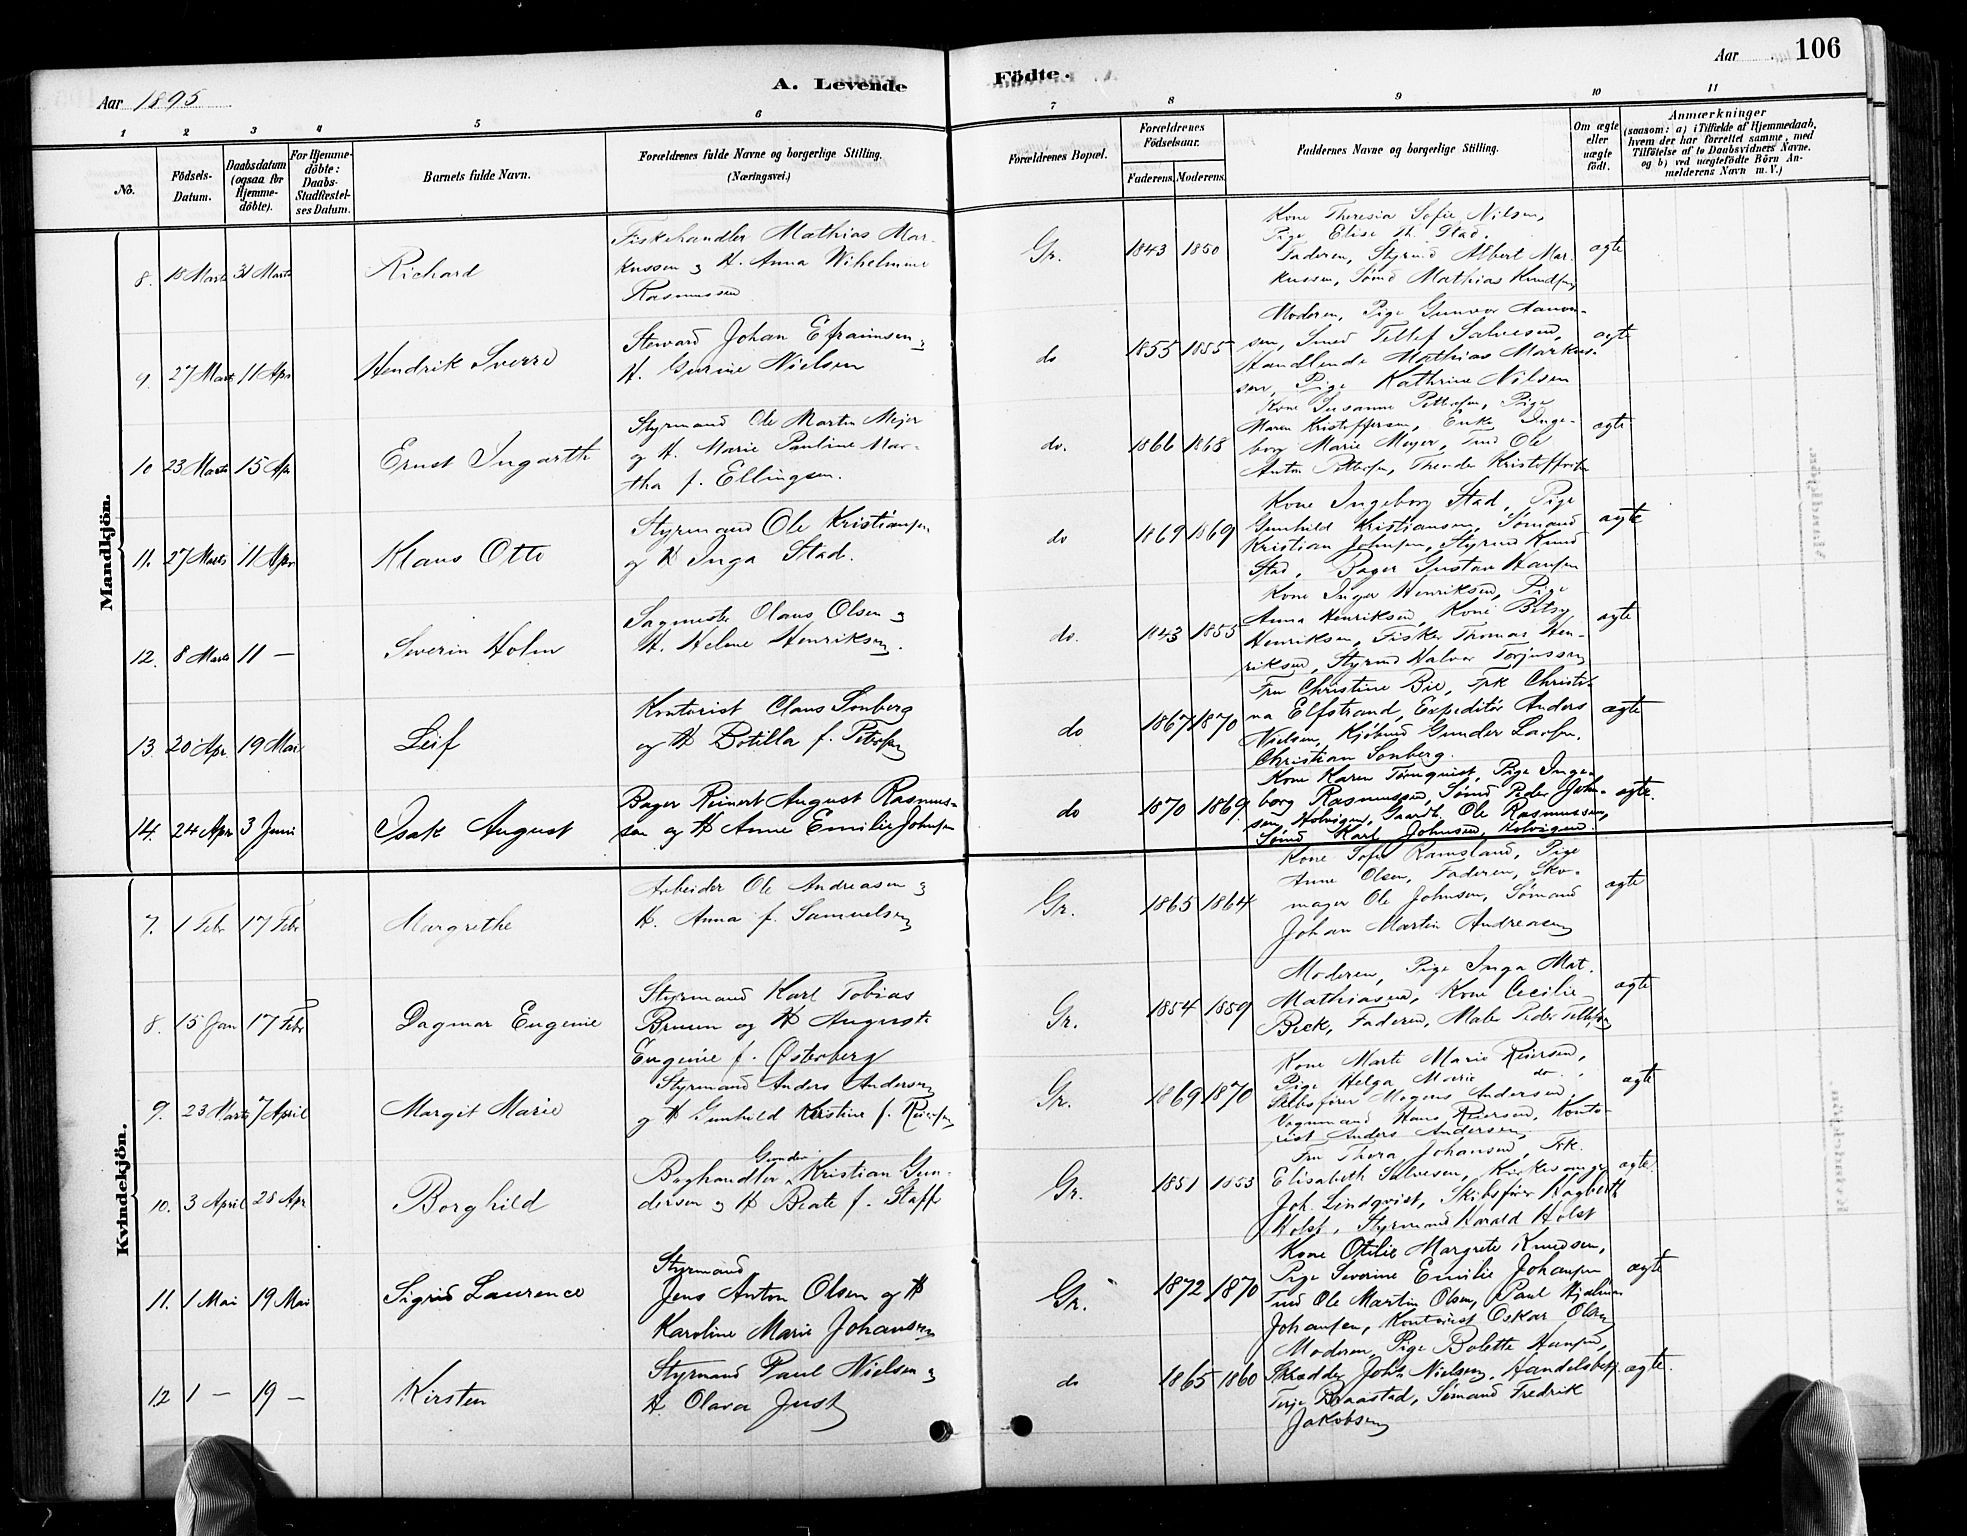 Aar 1895
A. Levende
Födte.
Aar 106
1 2 3 4 5 6 7 8 9 10 11
No.
Födsels-Datum.
Daabsdatum (ogsaa for Hjemme-döbte).
For Hjemme-döbte: Daabs-Stadfestel-ses Datum.
Barnets fulde Navn.
Forældrenes fulde Navne og borgerlige Stilling. (Næringsvei.)
Forældrenes Bopæl.
Forældrenes Födselsaar.
Faderens. Moderens.
Faddernes Navne og borgerlige Stilling.
Om ægte eller uægte födt.
Anmærkninger
(saasom: a) i Tilfælde af Hjemmedaab,
hvem der har forrettet samme, med
Tilföielse af to Daabsvidners Navne.
og b) ved uægtefödte Börn An-
melderens Navn m. V.)
Mandkjön.
8. 18 Marts 31 Marts Richard
Fiskehandler Mathias Mar-
kussen og H. Anna Wilhelmine
Rasmussen
Gr. 1843 1850
Kone Theresia Sofie Nilsen,
Pige Elise M. Stad.
Faderen, Styrmd Albert Mar-
kussen, Sømd Mathias Knudsen
ægte
9. 27 Marts 11 Apr Hendrik Sverre
Steward Johan Efraimsen og
H. Gurine Nielsen
do 1855 1855
Moderen, Pige Gunvor Aanon-
sen, Smed Tellef Salvesen,
Handlende Mathias Markus-
sen, Pige Kathrine Nilsen
ægte
10 23 Marts 15 Apr Ernst Ingarth
Styrmand Ole Martin Mejer
og H. Marie Pauline Mar-
tha f. Ellingsen.
do. 1866 1868
Kone Susanne Pettersen, Pige
Maren Kristoffersen, Enke Inge-
borg Marie Meyer, Tmd Ole
Anton Pettersen, Theodor Kristoffersen
ægte
11. 27 Marts 11 Apr Klaus Otto
Styrmand Ole Kristiansen
og H Inga Stad.
do 1869 1869
Kone Ingeborg Stad, Pige
Gunhild Kristiansen, Sømand
Kristian Johnsen, Styrmd Knud
Stad, Bager Gustav Hansen
ægte
12. 8 Marts 11 — Severin Holm
Sagmester Olaus Olsen og
H. Helene Henriksen.
do. 1843 1855
Kone Inger Henriksen, Pige
Anna Henriksen, Kone Betsy
Henriksen, Fisker Thomas Hen-
riksen, Styrmd Halvor Torjussen
ægte
13 20 Apr. 19 Mai Leif
Kontorist Claus Sonberg
og H Botilla f. Petersen
do 1867 1870
Fru Christine Bie, Frk Christi-
na Elfstrand, Expeditör Anders
Nielsen, Kjøbmd Gunder Larsen,
Christian Sonberg.
ægte
14. 24 Apr 3 Juni Isak August
Bager Reinert August Rasmus-
sen og H Anne Emilie Johnsen
do 1870 1869
Kone Karen Tørnquist, Pige Inge-
borg Rasmussen, Sømd Peder John-
sen, Holvigen, Gaardb. Ole Rasmussen,
Sømd Karl Johnsen, Holvigen.
ægte.
Kvindekjön.
7. 1 Febr 17 Febr Margrethe
Arbeider Ole Andreasen og
H. Anna f. Samuelsen
Gr. 1865 1864
Kone Sofie Ramsland, Pige
Anne Olsen, Faderen, Sko-
mager Ole Johnsen, Sømand
Johan Martin Andreasen
ægte
8. 15 Jan 17 Febr Dagmar Eugenie
Styrmand Karl Tobias
Bruun og H Auguste
Eugenie f. Østerberg
Gr. 1854 1859
Moderen, Pige Inga Mat.
Mathiasen, Kone Cecilie
Beck, Faderen, Maler Peder Tellefsen
ægte
9. 23 Marts 7 April Margit Marie
Styrmand Anders Andersen
og H Gunhild Kristine f. Reiersen
Gr. 1869 1870
Kone Marte Marie Reiersen,
Pige Helga Marie do.,
Skibsfører Mogens Andersen,
Vognmand Hans Reiersen, Konto-
rist Anders Andersen,
ægte
10. 3 April 28 Apr Borghild
Boghandler Gunder Kristian Gun-
dersen og H Beate f. Staff
Gr. 1851 1853
Fru Thora Johansen, Frk.
Elisabeth Salvesen, Kirkesanger
Joh. Lindqvist, Skibsfører Hagbarth
Holst, Styrmand Harald Holst
ægte
11. 1 Mai 19 Mai Sigrid Laurence
Styrmand
Jens Anton Olsen og H
Karoline Marie Johansen
Gr. 1872 1870
Kone Otilie Margrete Knudsen,
Pige Severine Emilie Johansen
Tmd Ole Martin Olsen, Paul Hjalmar
Johansen, Kontorist Oskar Olsen
ægte
12 1 — 19 — Kirsten
Styrmand Paul Nielsen og
H. Olava Just
do 1865 1860
Moderen, Pige Bolette Hansen,
Skrædder John Nielsen, Handelsbetj.
Terje Braastad, Sømand Fredrik
Jakobsen
ægte.